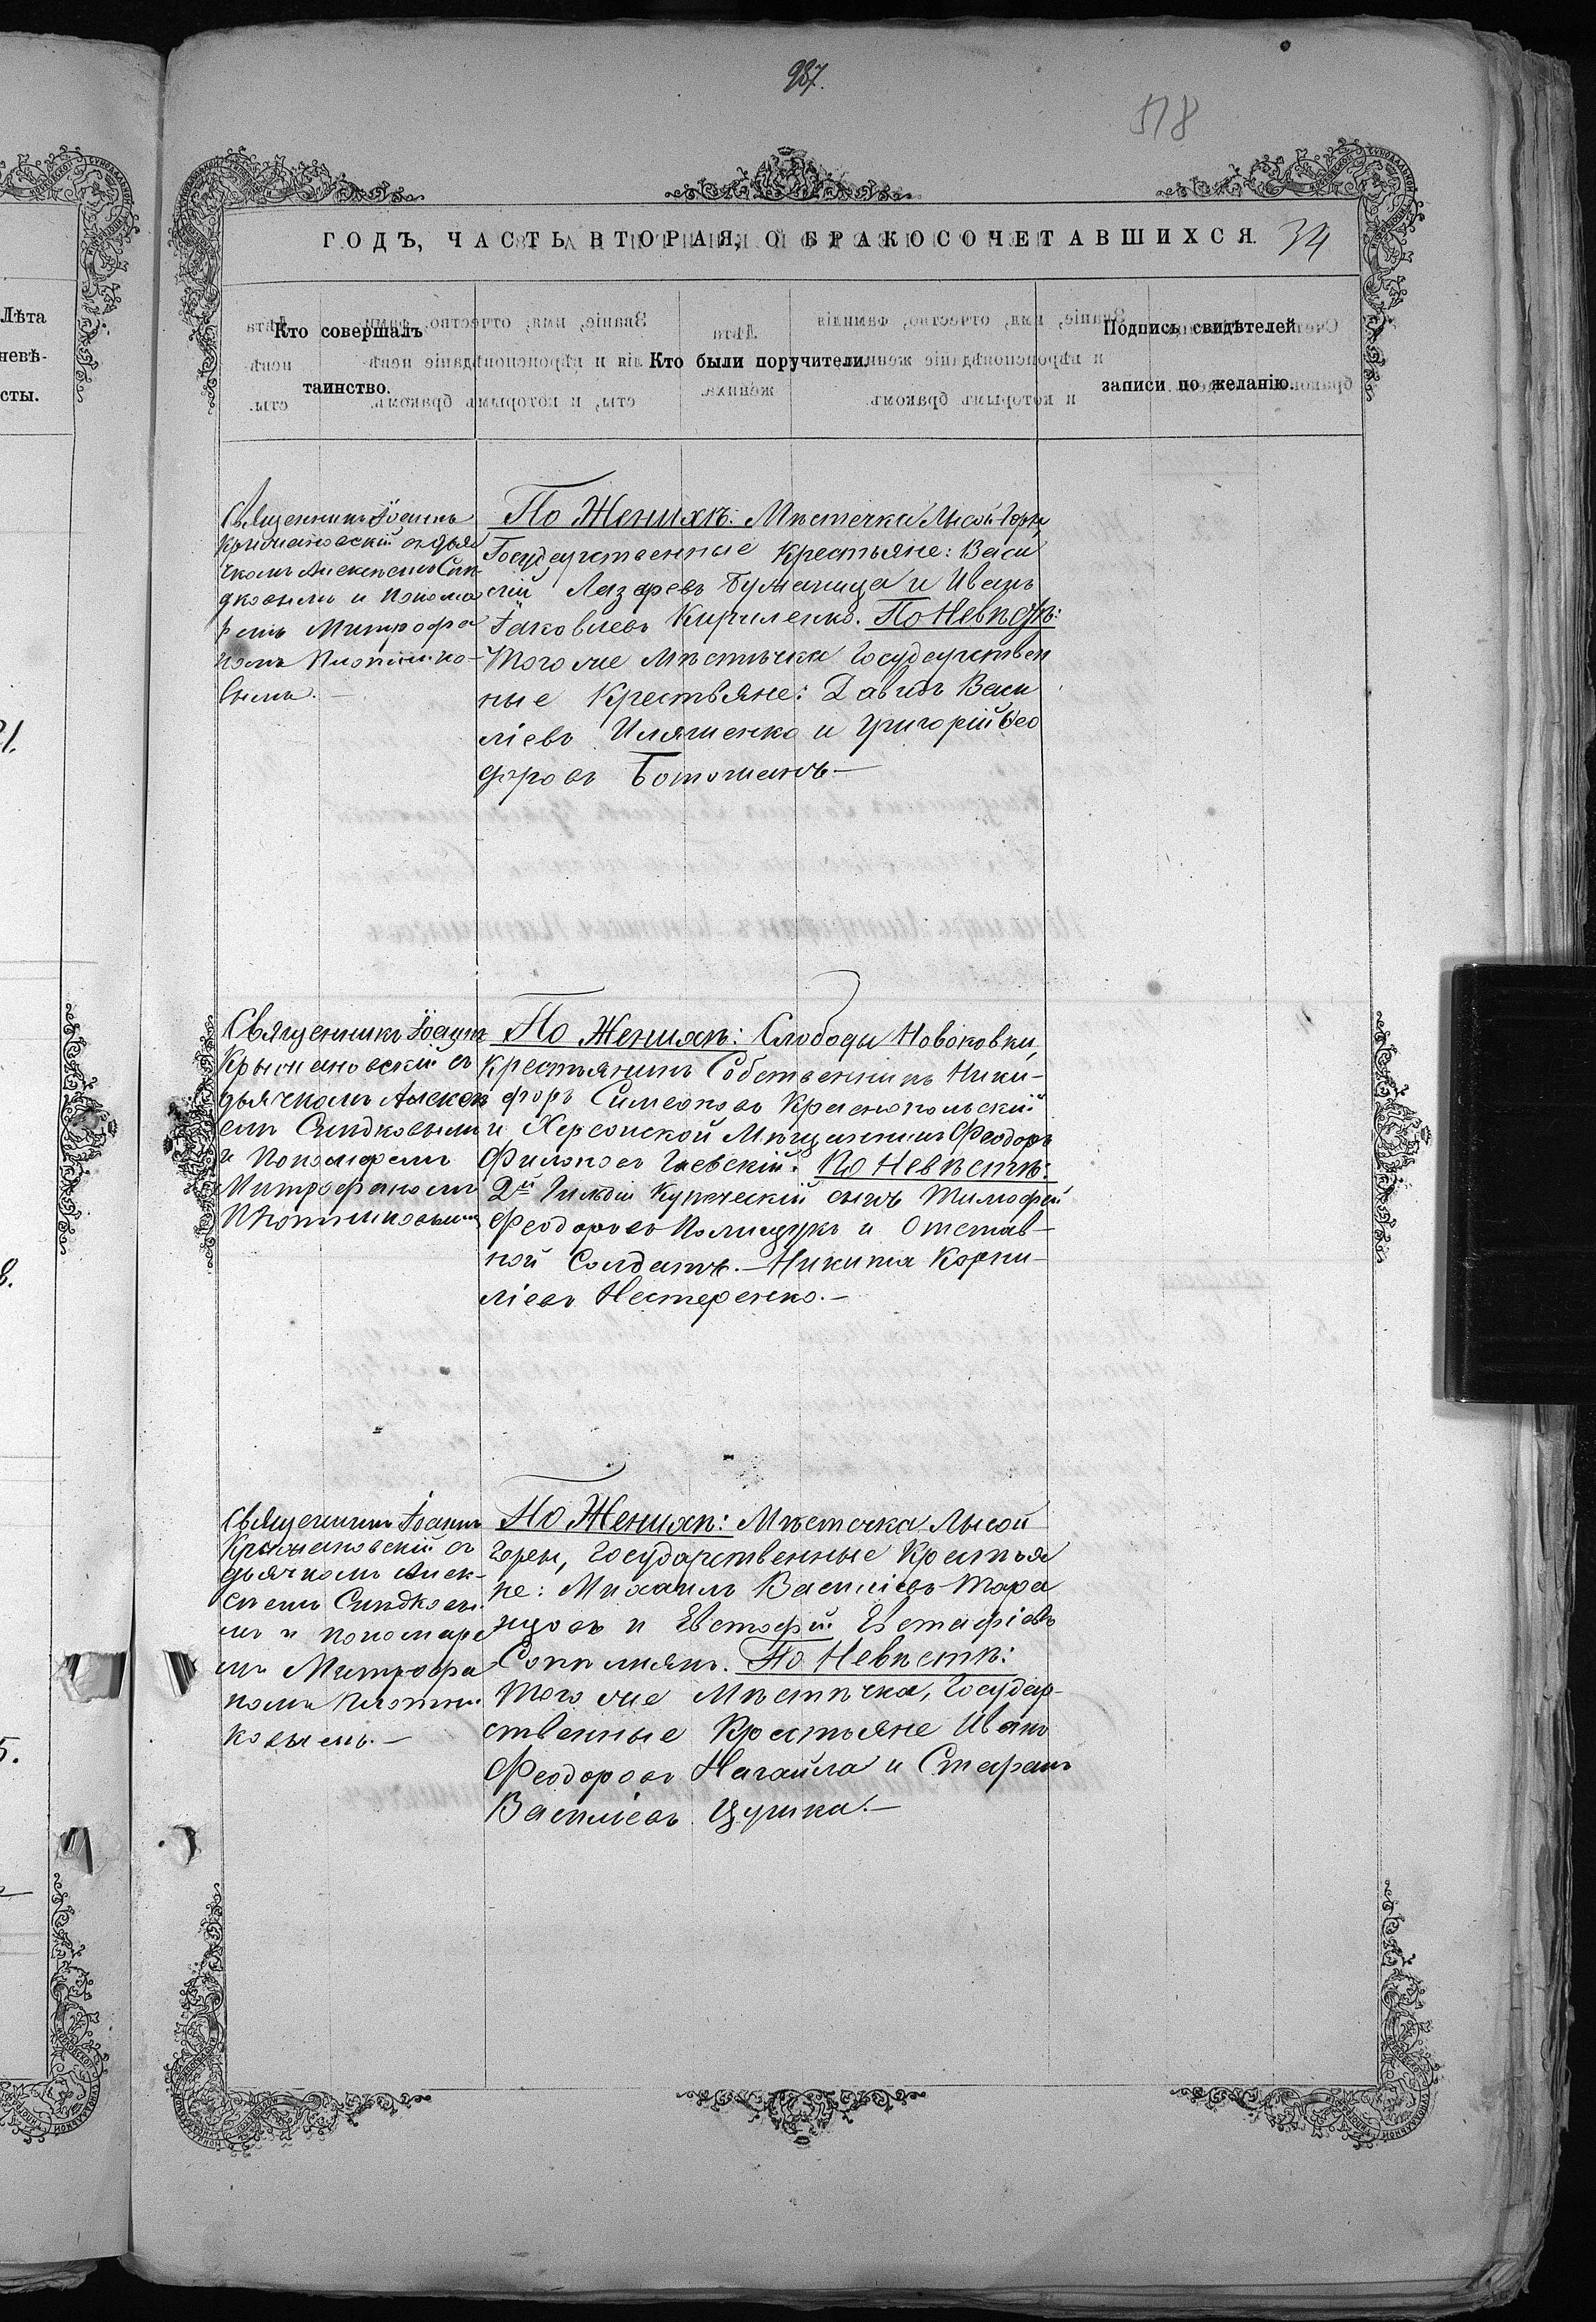 937.
518
ГОДЪ, ЧАСТЬ ВТОРАЯ, О БРАКОСОЧЕТАВШИХСЯ. 34
Лѣта
невѣ-
сты.
Кто совершалъ
таинство.
Кто были поручители.
Подпись свидѣтелей
записи по желанію.
Священникъ Іоаннъ
Крыжановскій съ дья
чкомъ Алексѣемъ
и понома
ремъ Митрофа
номъ Плотнико-
вымъ. —
По Женихѣ: Мѣстечка Лысой Горы
Государственные крестьяне: Васи
лій Лазаревъ и Иванъ
Іаковлевъ Кириленко. По Невѣстѣ:
Того же Мѣстечка Государствен
ные Крестьяне: Давидъ Васи
ліевъ Иляшенко и Григорій Ѳео
доровъ Ботошанъ —
Священникъ Іоаннъ
Крыжановскій съ
дьячкомъ Алексѣ
емъ
и Пономаремъ
Митрофаномъ
Плотниковымъ
По Женихѣ: Слободы Новоковки
крестьянинъ Собственникъ Ники-
форъ Симеоновъ Краснопольскій
и Херсонской Мѣщанинъ Феодоръ
Филоновъ Гаевскій. По Невѣстѣ:
2й Гильдіи Купеческій сынъ Тимофей
Феодоровъ Полищукъ и Отстав-
ной Солдатъ. — Никита Корни-
ліевъ Нестеренко. —
Священникъ Іоаннъ
Крыжановскій съ
дьячкомъ Алек-
сѣемъ
мъ и пономаре
мъ Митрофа
номъ Плотни
ковымъ. —
По Женихѣ: Мѣстечка Лысой
Горы, Государственные Крестья
не: Михаилъ Василіевъ Тара
цовъ и Евстафій Евстафіевъ
По Невѣстѣ:
Того же Мѣстечка, Государ-
ственные Крестьяне Иванъ
Феодоровъ Нагайла и Стефанъ
Василіевъ Цушка. —